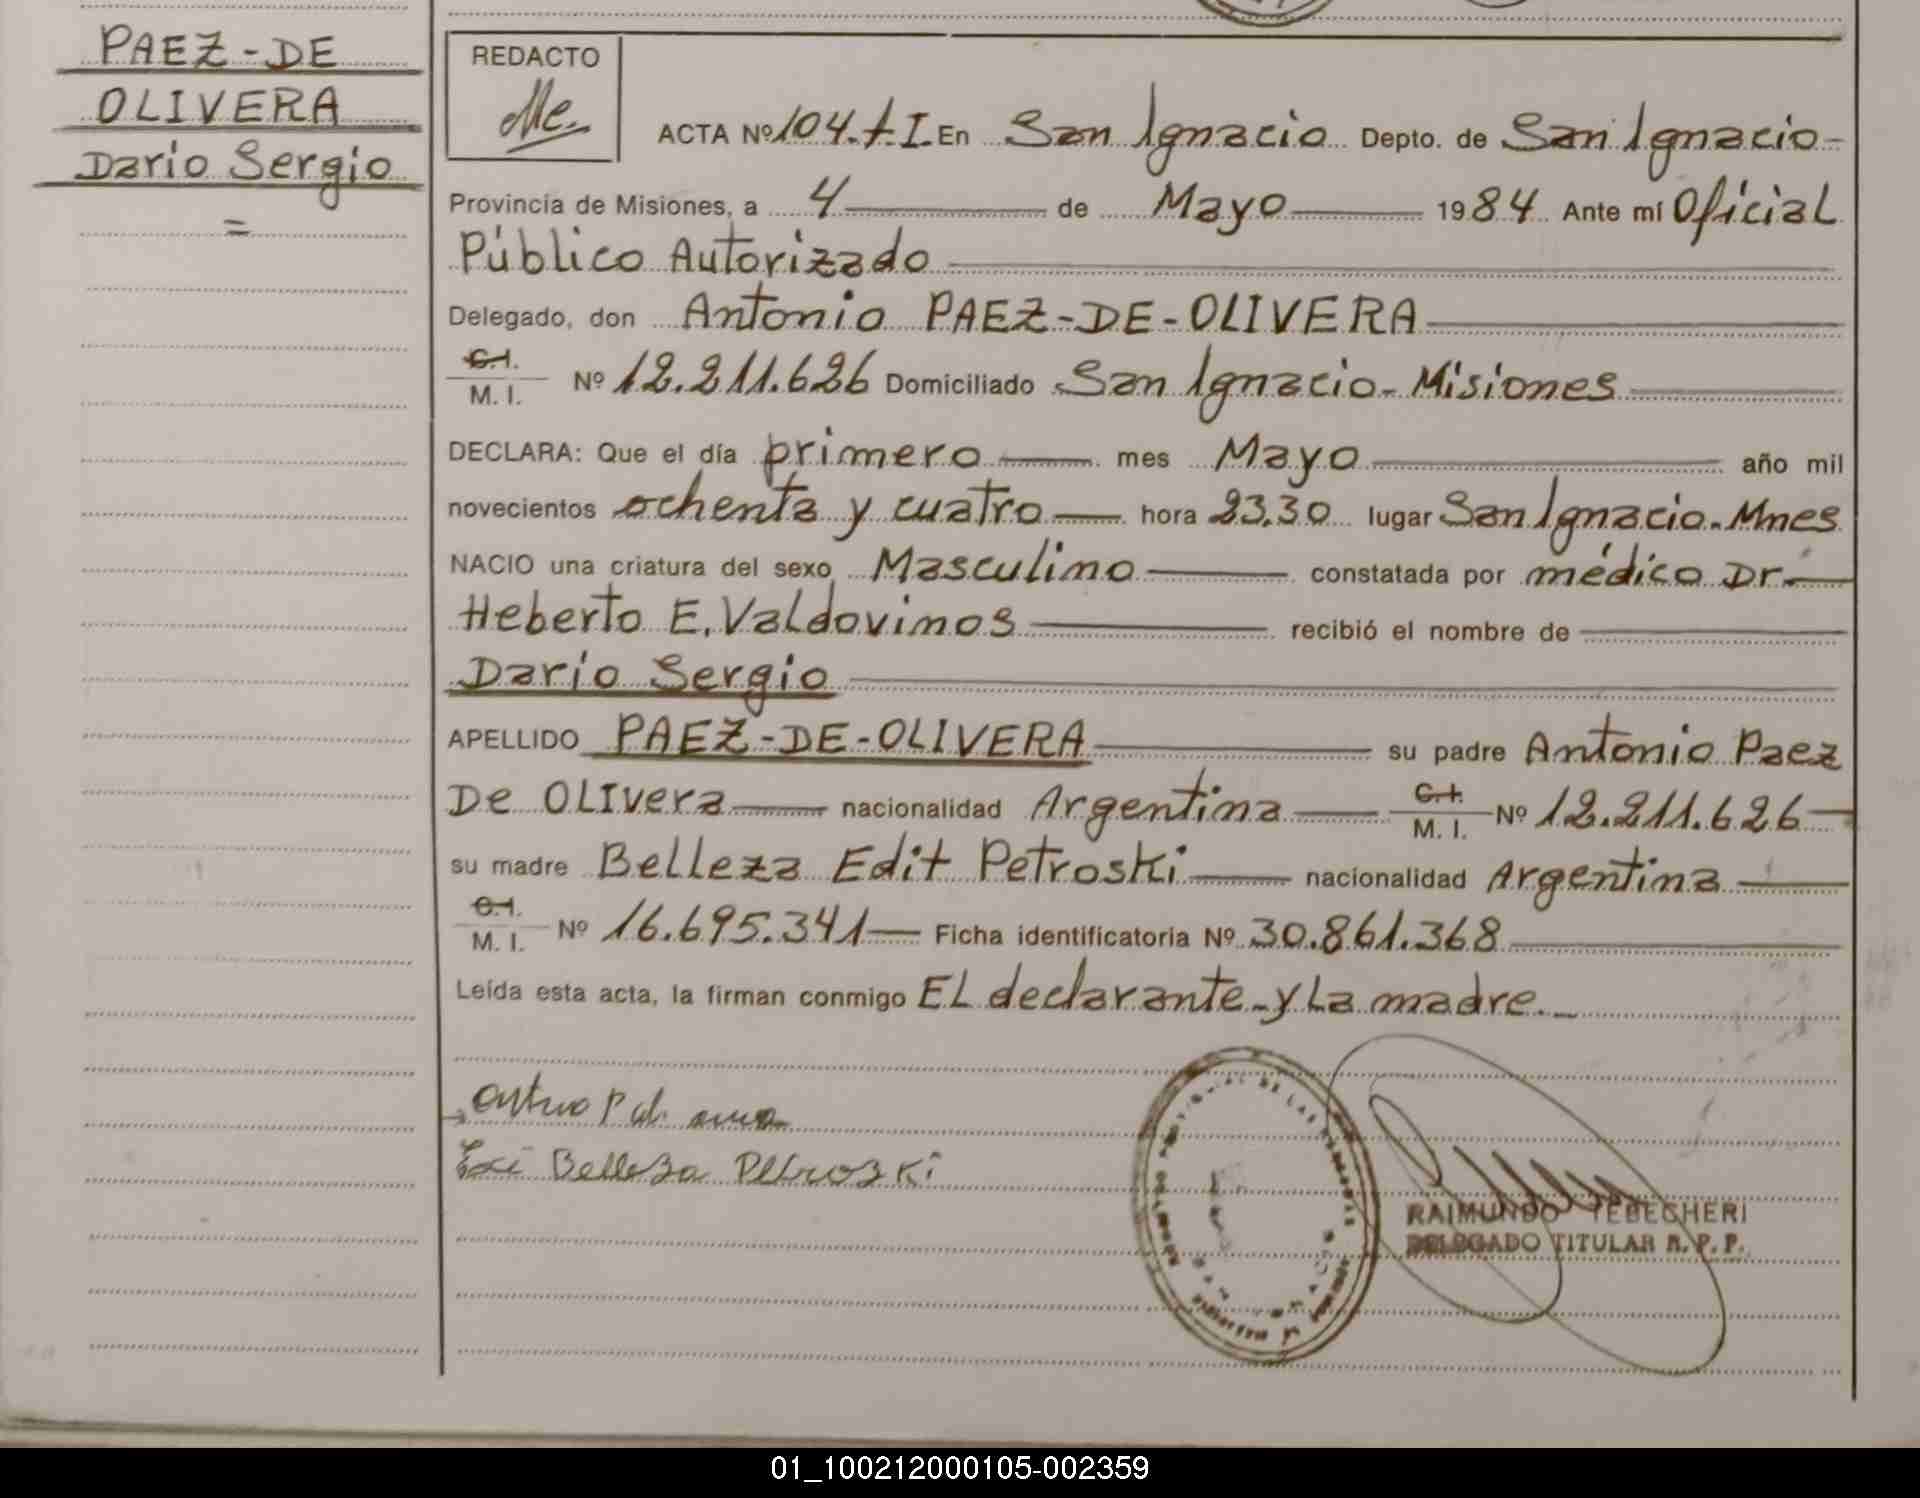 PAEZ-DE
OLIVERA
Dario Sergio
=
REDACTO
ACTA Nº 104. En San Ignacio Depto. de San Ignacio-
Provincia de Misiones, a 4 de Mayo 1984 Ante mí Oficial
Público Autorizado
Delegado, don Antonio PAEZ-DE-OLIVERA
C.I.
M. I. Nº 12.211.626 Domiciliado San Ignacio-Misiones
DECLARA: Que el día primero mes Mayo año mil
novecientos ochenta y cuatro hora 23.30 lugar San Ignacio-Mnes
NACIO una criatura del sexo Masculino constatada por médico Dr.
Heberto E. Valdovinos recibió el nombre de
Dario Sergio
APELLIDO PAEZ-DE-OLIVERA su padre Antonio Paez
De OLivera nacionalidad Argentina C.I. M. I. Nº 12.211.626
su madre Belleza Edit Petroski nacionalidad Argentina
C.I.
M. I. Nº 16.695.341 Ficha identificatoria Nº 30.861.368
Leída esta acta, la firman conmigo EL declarante-y La madre.
Belleza Petroski
RAIMUNDO TEBECHERI
DELEGADO TITULAR R. P. P.
01_100212000105-002359